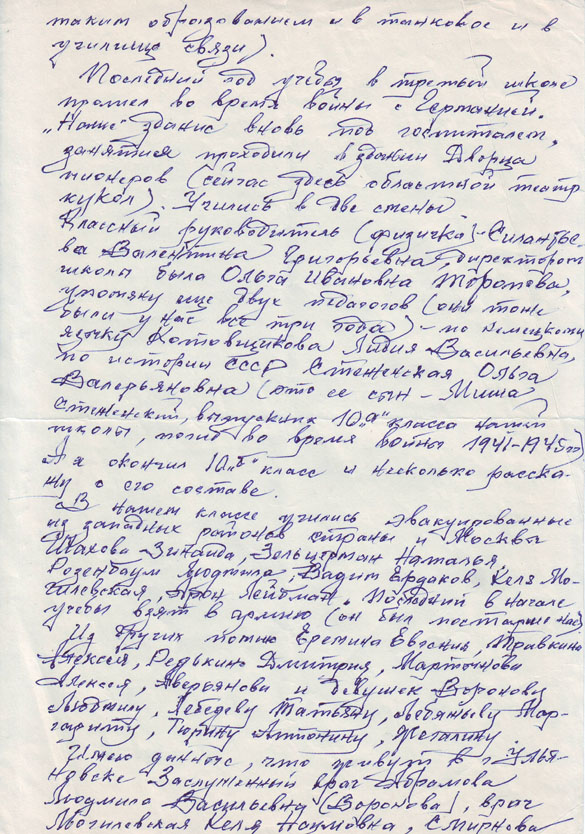 таким образованием и в танковое и в
училища связи).
Последний год учёбы в третьей школе
прошел во время войны с Германией.
"Наше" здание вновь под госпиталем,
занятия проходили в здании Дворца
пионеров (сейчас здесь областной театр
кукол). Учились в две смены
Классный руководитель (физичка) - Силантье-
ва Валентина Григорьевна, директором
школы была Ольга Ивановна Торопова,
упомяну еще двух педагогов (они тоже
были у нас все три года) - по немецкому
язычку Котовщикова Лидия Васильевна,
по истории СССР Стеженская Ольга
Валерьяновна (это ее сын - Миша
Стеженский, выпускник 10"а" класса нашей
школы, погиб во время войны 1941-1945гг)
А я окончил 10"б" класс и несколько расска-
жу о его составе.
В нашем классе учились эвакуированные
из западных районов страны и Москвы
Шахова Зинаида, Зельцерман Наталья,
Розенбаум Людмила, Вадим Ердаков, Келя Мо-
гилевская, Арон Лейбман. Последний в начале
учебы взят в армию (он был постарше нас)
Из других помню Еремина Евгения, Травкина
Алексея, Редькина Дмитрия, Мартынова
Алексея, Аверьянова и девушек Воронову
Людмилу, Лебедеву Татьяну, Лебяжьеву Мар-
гариту, Тюрину Антонину, Жегалину
Имею данные, что живут в г. Улья-
новске Заслуженный врач Абрамова
Людмила Васильевна (Воронова), врач
Могилевская Келя Наумовна, Смирнова